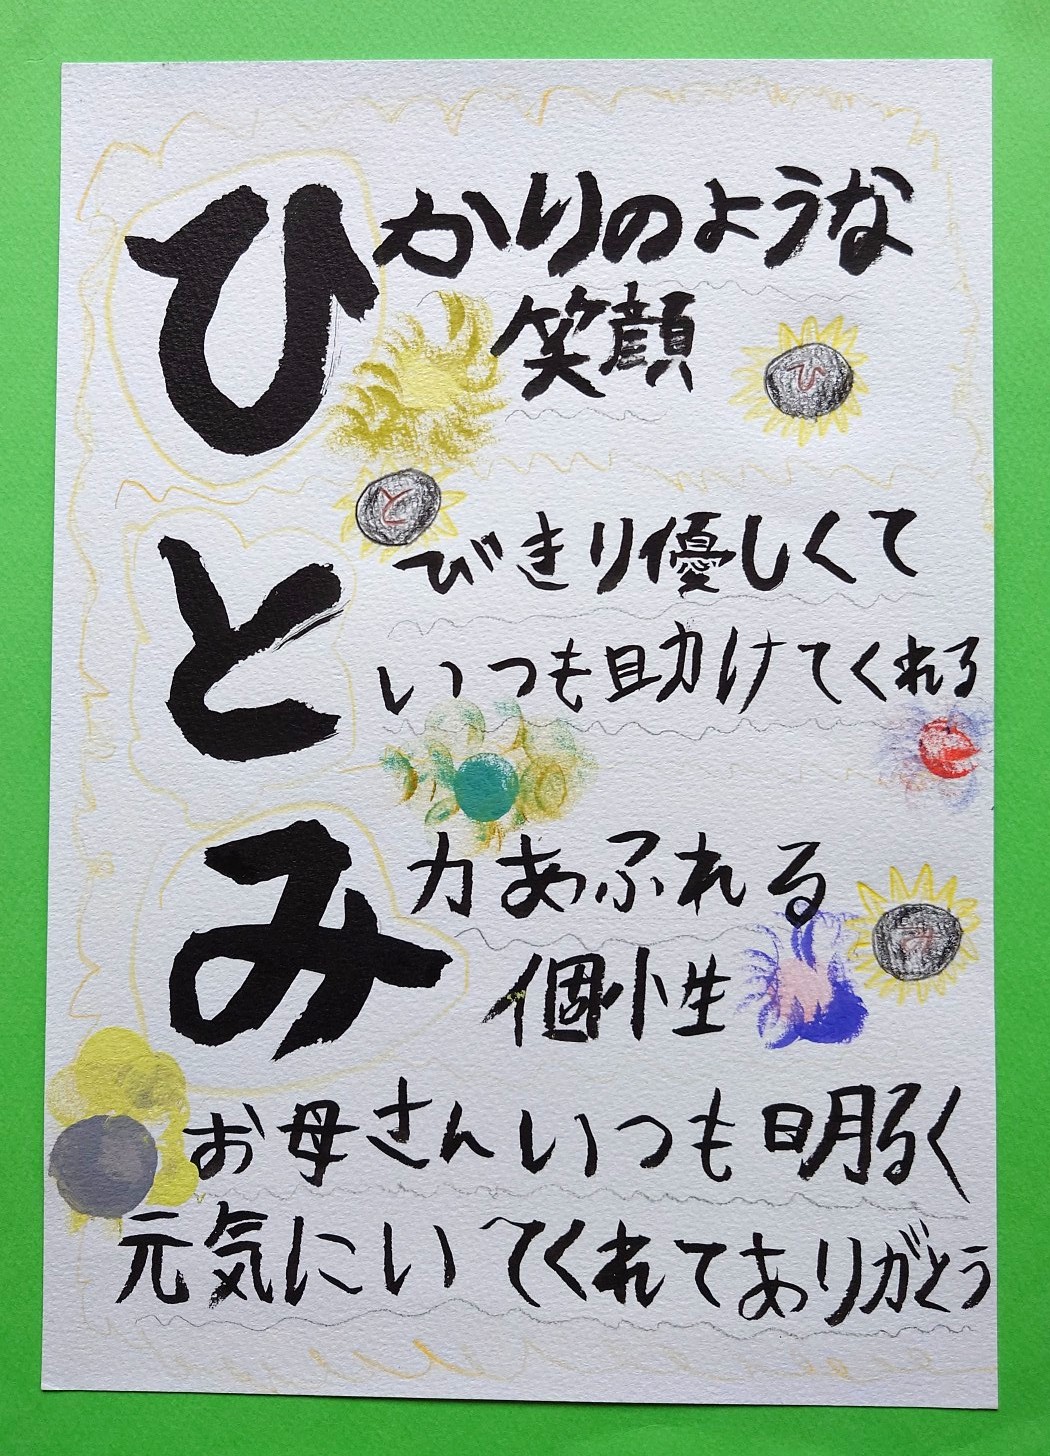 ひかりのような
笑顔
ひ
と
とびきり優しくて
いつも助けてくれる
み力あふれる
個性
お母さんいつも明るく
元気にいてくれてありがとう